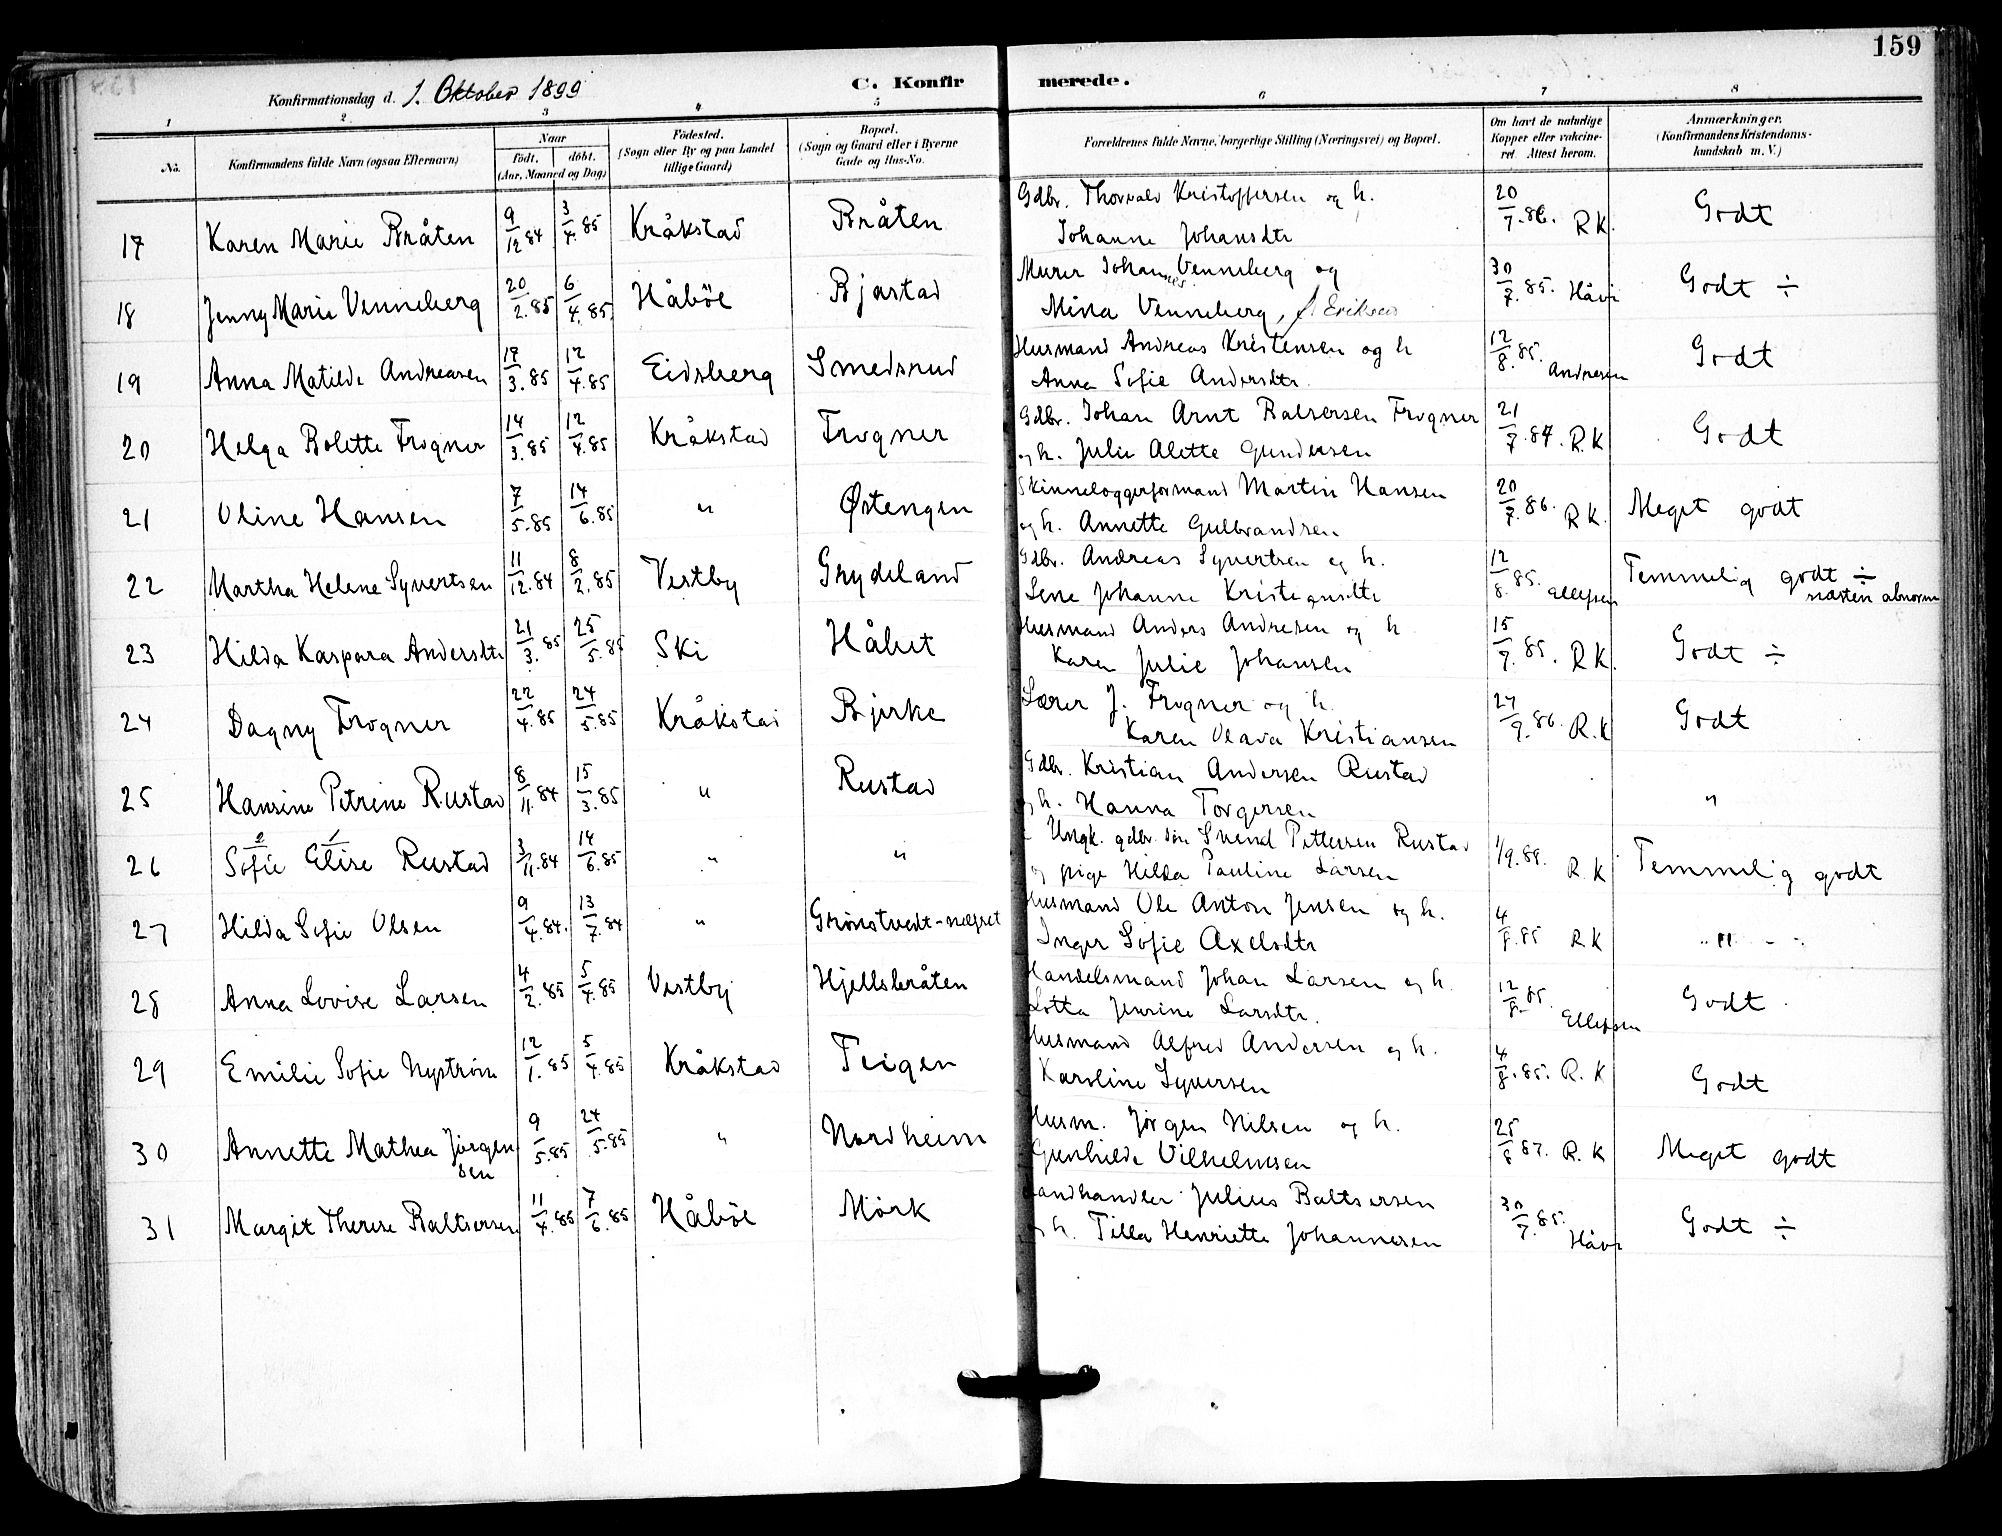 159
Konfirmationsdag d. 1. Oktober 1899 C. Konfirmerede.
1 2 3 4 5 6 7 8
No. Konfirmandens fulde Navn (ogsaa Efternavn) Naar født. døbt. (Aar, Maaned og Dag) Fødested. (Sogn eller By og paa Landet tillige Gaard) Bopæl. (Sogn og Gaard eller i Byerne Gade og Hus-No. Forældrenes fulde Navne, borgerlige Stilling (Næringsvei) og Bopæl. Om havt de naturlige Kopper eller vakcineret. Attest herom. Anmærkninger. (Konfirmandens Kristendomskundskab m. V.)
17 Karen Marie Bråten 9/12 84 3/4. 85 Kråkstad Bråten Gdbr. Thorvald Kristoffersen og h. Johanne Johansdtr 20/7. 86. R K. Godt
18 Jenny Marie Venneberg 20/2. 85 6/4. 85. Håbøl Bjastad Murer Johannes Venneberg og Mina Venneberg, f. Eriksen 30/7. 85. Håvi Godt ÷
19 Anna Matilde Andreasen 17/3. 85 12/4. 85 Eidsberg Smedsrud Husmand Andreas Kristensen og h Anna Sofie Andersdtr. 12/8. 85. Andresen Godt
20 Helga Bolette Frogner 14/3. 85 12/4. 85 Kråkstad Frogner Gdbr. Johan Arnt Balsersen Frogner og h. Julie Alette Gundersen 21/7. 87. R. K Godt
21 Oline Hansen 7/5. 85 14/6. 85 " Østengen Skinneleggerformand Martin Hansen og h. Annette Gulbrandsen 20/7. 86. R K. Meget godt
22 Martha Helene Syvertsen 11/12. 84 8/2. 85 Vestby Grydeland Gdbr. Andreas Syvertsen og h. Lene Johanne Kristiansdtr 12/8. 85. Ellefsen Temmelig godt ÷ næsten abnorm
23 Hilda Kaspara Andersdtr 21/3. 85 25/5. 85 Ski Håbet Husmand Anders Andresen og h Karen Julie Johansen 15/7. 85. R K. Godt ÷
24 Dagny Frogner 22/4. 85 24/5. 85 Kråkstad Bjerke Lærer J. Frogner og h. Karen Olava Kristiansen 27/9. 86. R. K Godt
25 Hansine Petrine Rustad 8/11. 84 15/3. 85 " Rustad Gdbr. Kristian Andersen Rustad og h. Hanna Torgersen "
26 Sofie Elise Rustad 3/11. 84 14/6. 85 " " Ungk. gdbr. søn Svend Pettersen Rustad og pige Hilda Pauline Larsen 1/9. 89. R. K Temmelig godt
27 Hilda Sofie Olsen 9/4. 84. 13/7. 84 " Grønstvedt- Husmand Ole Anton Jensen og h. Inger Sofie Axelsdtr 4/8. 85 R K "
28 Anna Lovise Larsen 4/2. 85 5/4. 85 Vestby Hjellsbråten Handelsmand Johan Larsen og h. Lotta Jensine Larsdtr. 12/8. 85. Ellefsen Godt
29 Emilie Sofie Nystrøm 12/1. 85 5/4. 85 Kråkstad Teigen Husmand Alfred Andersen og h. Karoline Syversen 4/8. 85. R. K Godt
30 Annette Mathea Jørgensen 9/5. 85 24/5. 85 " Nordheim Husm. Jørgen Nilsen og h. Gunhilde Vilhelmsen 25/8 87. R. K Meget godt
31 Margit Therese Baltsersen 11/4. 85 7/6. 85 Håbøl Mörk Landhandler Julius Baltsersen og h. Tilla Henriette Johannesen 30/7. 85. Håvi Godt ÷